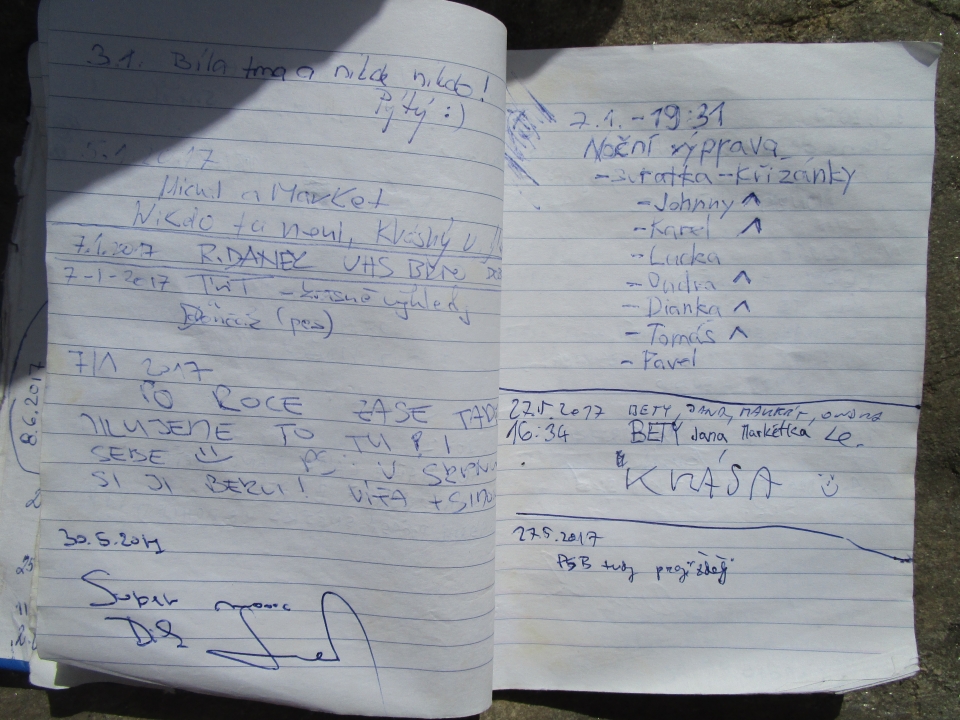 3.1. Bílá tma a nikde nikdo!
Pýtý :)
5.1. 2017
Michal a Market
Nikdo tu není, krásný v
7.1.2017 R.DANEC VHS BRNO
7-1-2017 - krásné výhledy
(pes)
7/1 2017
PO ROCE ZASE TADY
MILUJEME TO TU
SEBE ☺ PS: V SRPNU
SI JI BERU! VÍŤA +
30.5.2017
Super
7.1. - 19:31
Noční výprava
- Svratka - Křižánky
- Johnny ^
- Karel ^
- Lucka
- Ondra ^
- Dianka ^
- Tomáš ^
- Pavel
27.5.2017 BETY, JANA,
16:34 BETY Jana Markétká
KRÁSA ☺
27.5.2017
tudy projíždějí
8.6.2017